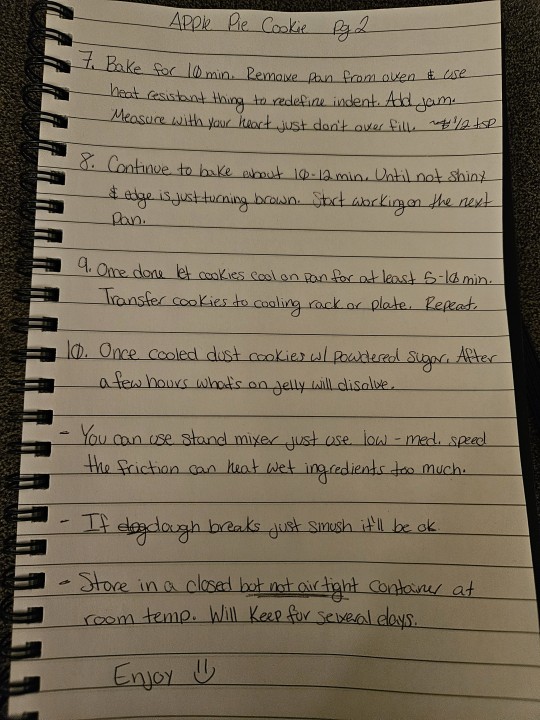 Apple Pie Cookie Pg 2
7. Bake for 10 min. Remove pan from oven & use
heat resistant thing to redefine indent. Add jam.
Measure with your heart just don't over fill. ~ 1/2 tsp
8. Continue to bake about 10-12 min. Until not shiny
& edge is just turning brown. Start working on the next
pan.
9. One done let cookies cool on pan for at least 5-10 min.
Transfer cookies to cooling rack or plate. Repeat.
10. Once cooled dust cookies w/ powdered sugar. After
a few hours what's on jelly will disolve.
- You can use stand mixer just use low - med. speed
the friction can heat wet ingredients too much.
- If dough breaks just smush it'll be ok
- Store in a closed but not air tight container at
room temp. Will keep for several days.
Enjoy